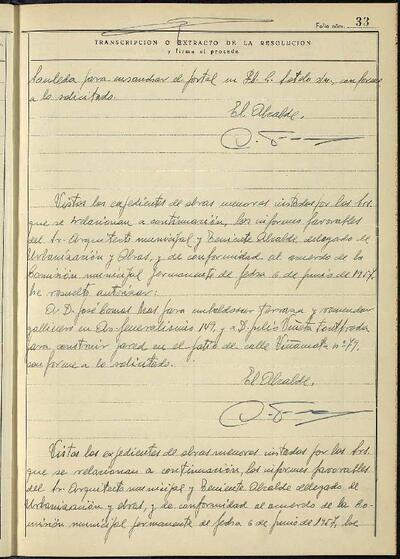 Folio núm. 33
TRANSCRIPCION O EXTRACTO DE LA RESOLUCION
y firma si procede
para ensanchar el portal en conforme
a lo solicitado.
El Alcalde,
Vistos los expedientes de obras menores instados por los Srs.
que se relacionan a continuación, los informes favorables
del Sr. Arquitecto municipal y Teniente Alcalde delegado de
Urbanización y Obras, y de conformidad al acuerdo de la
Comisión municipal permanente de fecha 6 de junio de 1967,
he resuelto autorizar:
A D. José Comas Mas para embaldosar terraza y remendar
gallinero en Av. Generalísimo 149, y a D. Julio Viñeta
para construir pared en el patio de calle Viñamata nº 79,
conforme a lo solicitado.
El Alcalde,
Vistos los expedientes de obras menores instados por los Srs.
que se relacionan a continuación, los informes favorables
del Sr. Arquitecto municipal y Teniente Alcalde delegado de
Urbanización y obras, y de conformidad al acuerdo de la Co-
misión municipal permanente de fecha 6 de junio de 1967, he